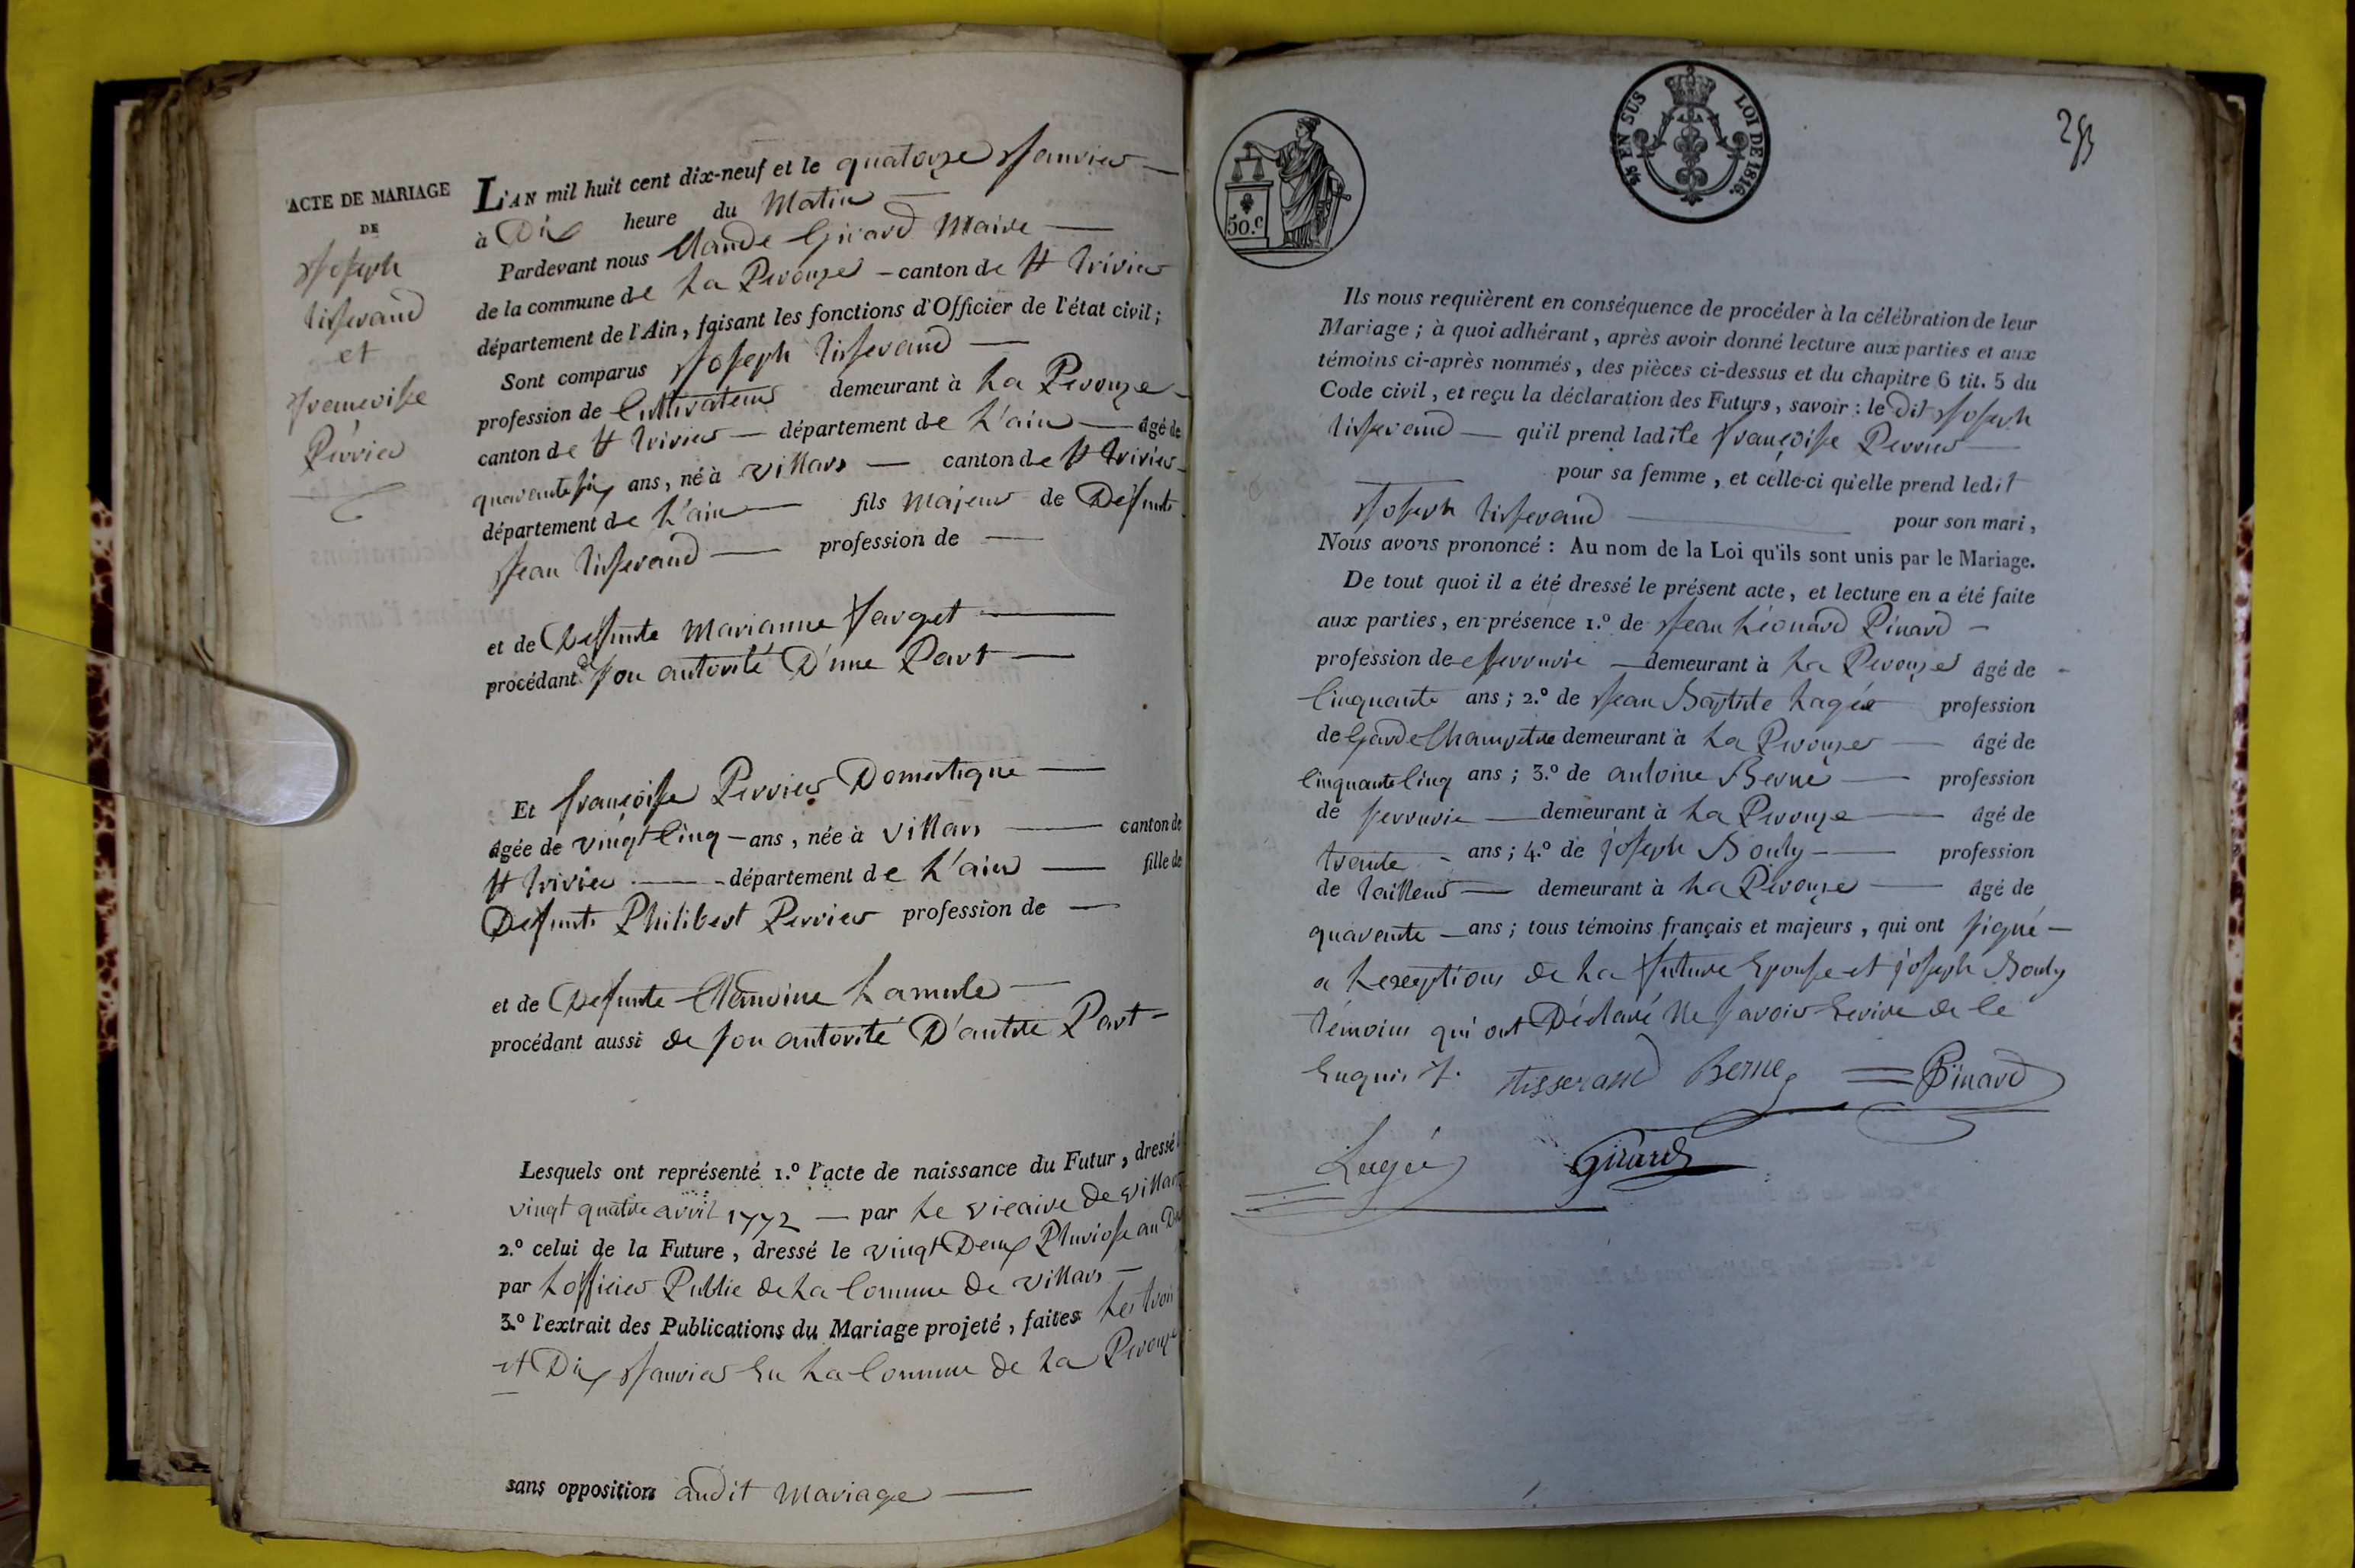 ACTE DE MARIAGE
DE
Joseph
tisserand
et
françoise
Perrier
L'AN mil huit cent dix-neuf et le quatorze Janvier
à Dix heure du Matin
Pardevant nous Claude Girard Maire
de la commune de La Perouze canton de St trivier
département de l'Ain, faisant les fonctions d'Officier de l'état civil;
Sont comparus Joseph tisserand
profession de Cultivateur demeurant à La Perouze
canton de St trivier département de L'ain âgé de
quarante six ans, né à villars canton de St trivier
département de L'ain fils Majeur de Défunt
Jean tisserand profession de
et de Deffunte Marianne farget
procédant de son autorité D'une Part
Et françoise Perrier Domestique
âgée de vingt Cinq ans, née à villars canton de
St trivier département de L'ain fille de
Defunt Philibert Perrier profession de
et de Defunte Claudine Lamule
procédant aussi de son autorité D'autre Part
Lesquels ont représenté 1.º l'acte de naissance du Futur, dressé
vingt quatre avril 1772 par Le vicaire de villars
2.º celui de la Future, dressé le vingt Deux Pluviose an
par Lofficier Public de La Comune de villars
3.º l'extrait des Publications du Mariage projeté, faites Les trois
et Dix Janvier En La Comune de La Perouze
sans opposition audit Mariage
50.C
25 EN SUS LOI DE 1816.
Ils nous requièrent en conséquence de procéder à la célébration de leur
Mariage; à quoi adhérant, après avoir donné lecture aux parties et aux
témoins ci-après nommés, des pièces ci-dessus et du chapitre 6 tit. 5 du
Code civil, et reçu la déclaration des Futurs, savoir: le Dit Joseph
tisserand qu'il prend ladite françoise Perrier
pour sa femme, et celle-ci qu'elle prend ledit
Joseph tisserand pour son mari,
Nous avons prononcé: Au nom de la Loi qu'ils sont unis par le Mariage.
De tout quoi il a été dressé le présent acte, et lecture en a été faite
aux parties, en présence 1.º de Jean Léonard Pinard
profession de serrurie demeurant à La Perouze âgé de
Cinquante ans; 2.º de Jean Baptiste Lagée profession
de Garde Champetre demeurant à La Perouze âgé de
Cinquante Cinq ans; 3.º de antoine Berné profession
de serrurie demeurant à La Perouze âgé de
trante ans; 4.º de joseph Bouly profession
de tailleur demeurant à La Perouze âgé de
quarente ans; tous témoins français et majeurs, qui ont signé
a Lexception de La future Epouse et joseph Bouly
témoins qui ont Déclaré Ne savoir Ecrire de ce
Enquis
tisserand Berne Pinard
Lagée Girard